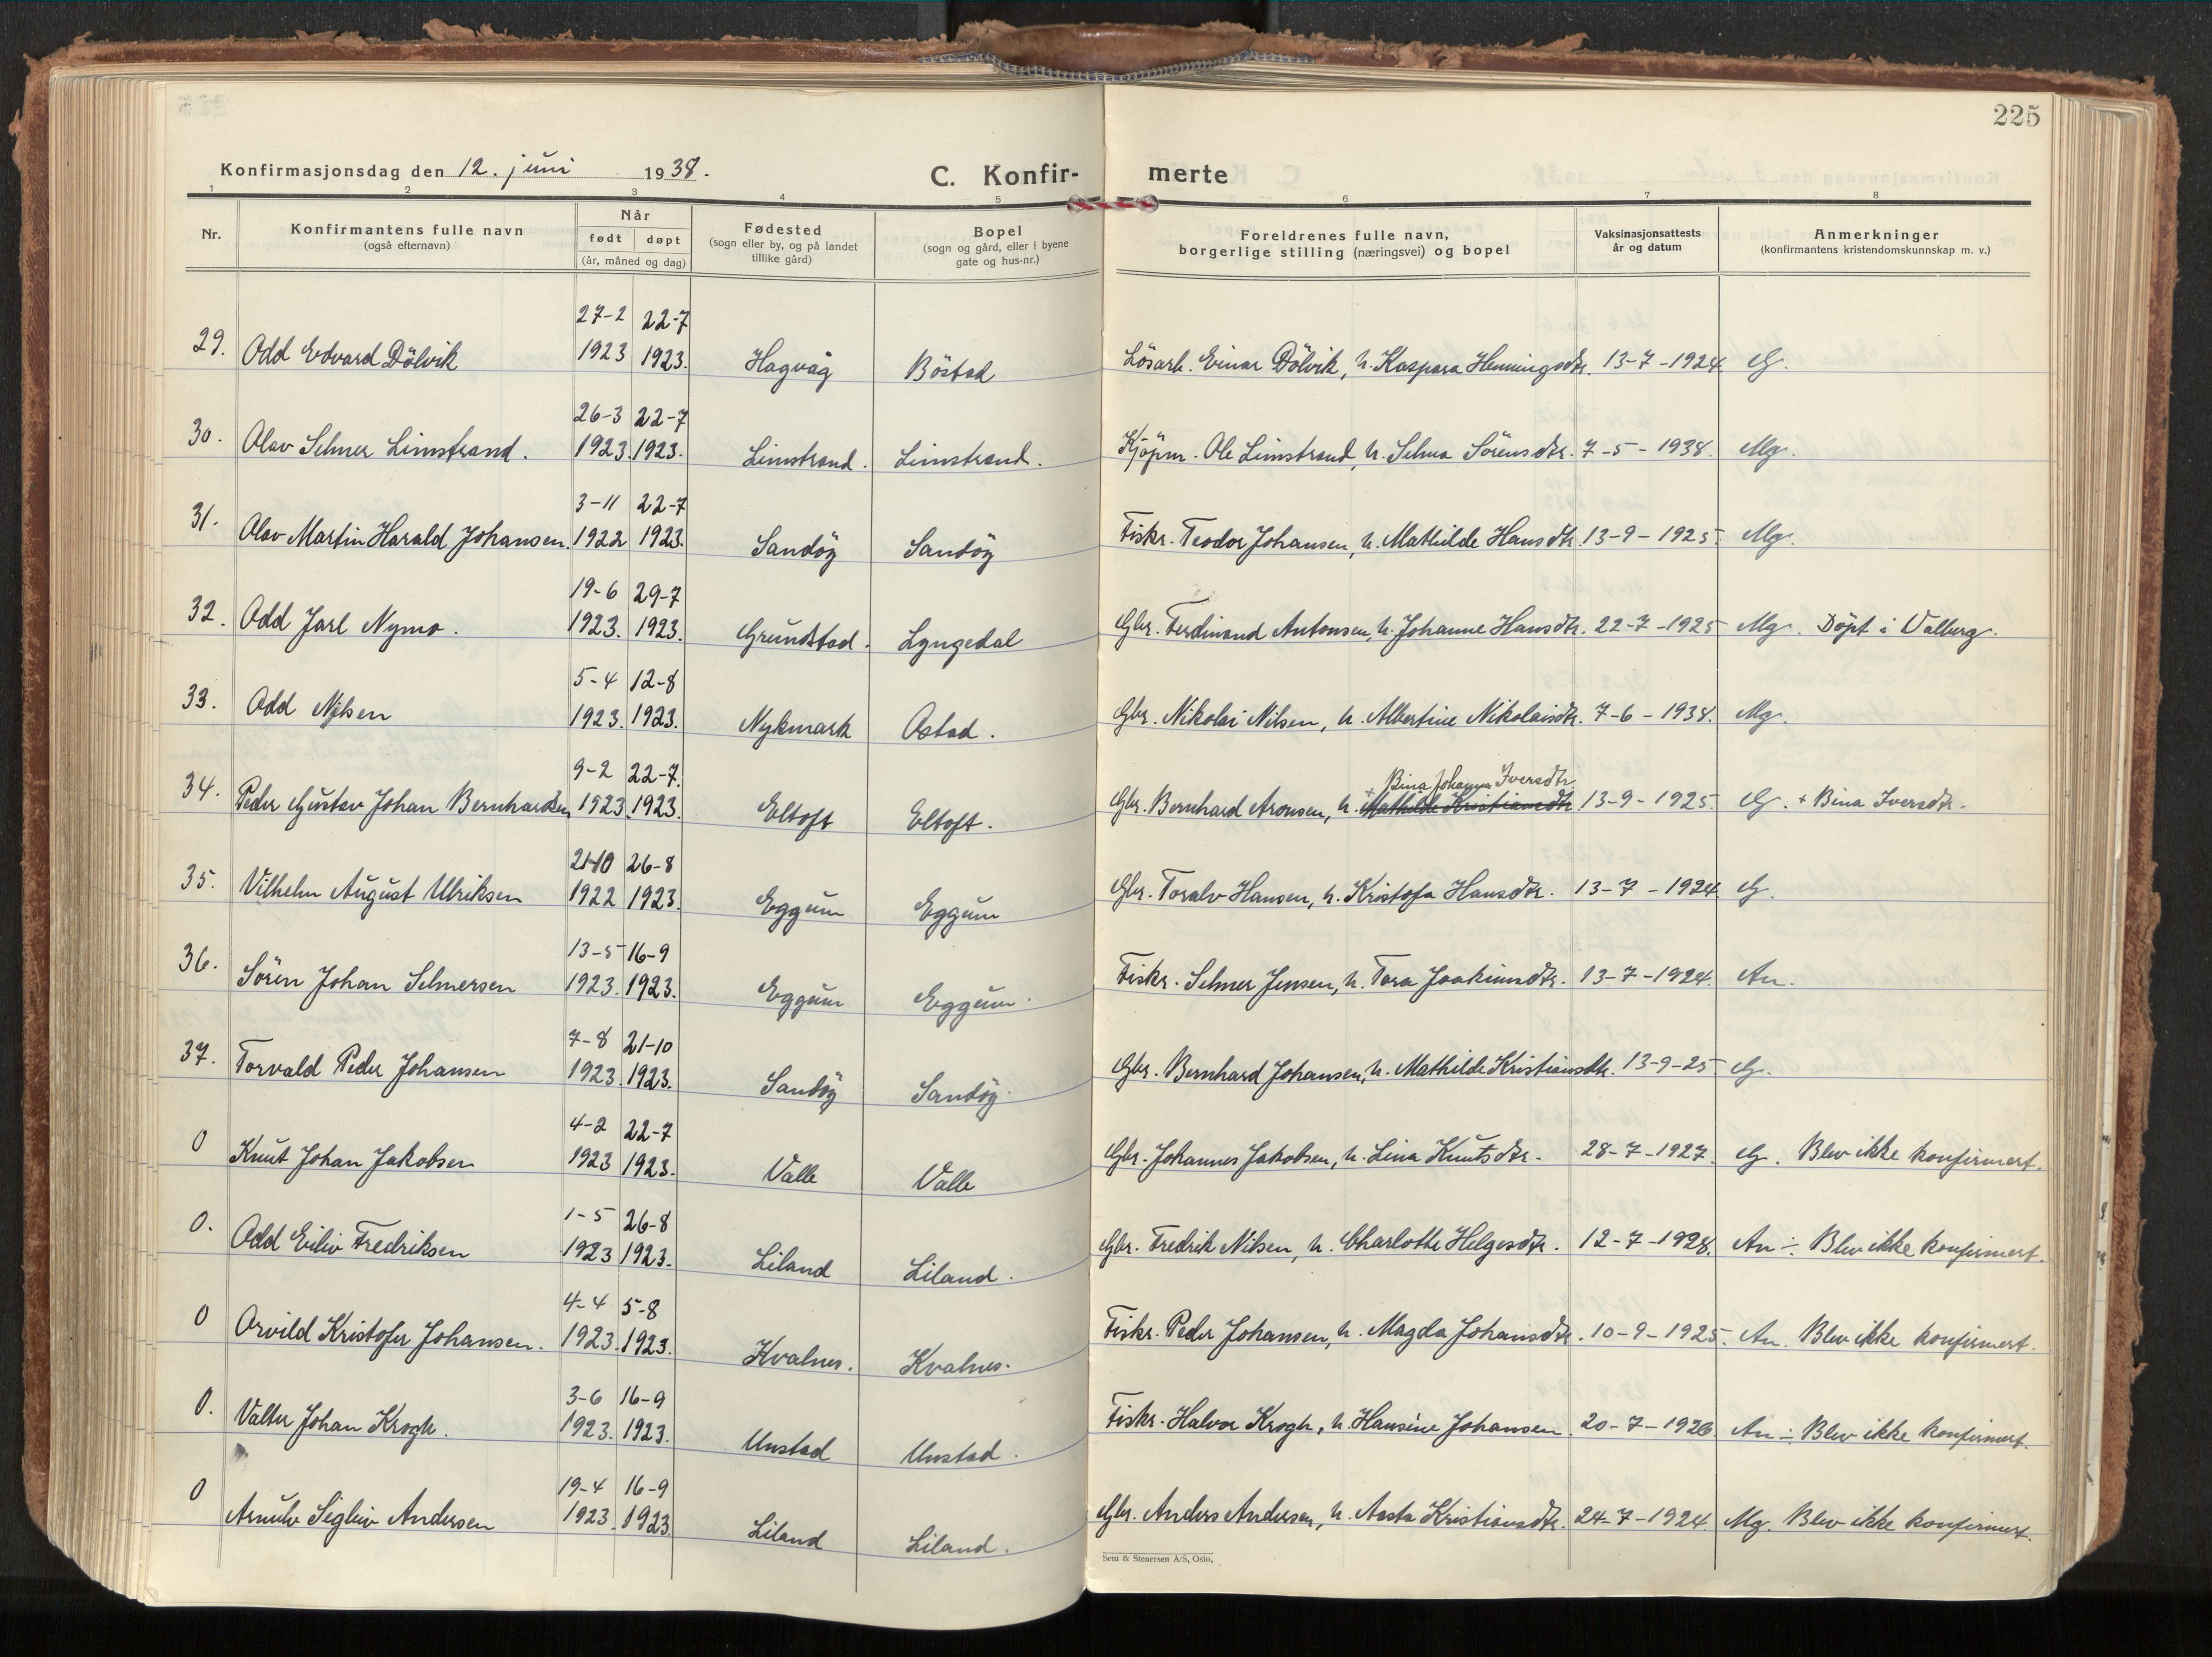 225
Konfirmasjonsdag den 12. juni 1938.
C. Konfir- merte
1 2 3 4 5 6 7 8
Nr.
Konfirmantens fulle navn
(også efternavn)
Når
født døpt
(år, måned og dag)
Fødested
(sogn eller by, og på landet
tillike gård)
Bopel
(sogn og gård, eller i byene
gate og hus-nr.)
Foreldrenes fulle navn,
borgerlige stilling (næringsvei) og bopel
Vaksinasjonsattests
år og datum
Anmerkninger
(konfirmantens kristendomskunnskap m. v.)
27-2 22-7
29. Odd Edvard Dölvik 1923 1923. Hagvåg Böstad Lösarb. Einar Dölvik, h. Kaspara Henningsdtr. 13-7-1924. G.
26-3 22-7
30. Olav Selmer Limstrand. 1923. 1923. Limstrand. Limstrand. Kjöpm. Ole Limstrand, h. Selma Sörensdtr. 7-5-1938. Mg.
3-11 22-7
31. Olav Martin Harald Johansen. 1922 1923. Sandöy Sandöy Fiskr. Teodor Johansen, h. Mathilde Hansdtr. 13-9-1925. Mg.
19-6 29-7
32. Odd Jarl Nymo. 1923. 1923. Grundstad. Lyngedal Gbr. Ferdinand Antonsen, h. Johanne Hansdtr. 22-7-1925 Mg. Döpt i Valberg.
5-4 12-8
33. Odd Nilsen 1923. 1923. Nykmark Ostad. Gbr. Nikolai Nilsen, h. Albertine Nikolaisdtr. 7-6-1938. Mg.
9-2 22-7. + Bina Johanna Iversdtr.
34. Peder Gustav Johan Bernhardsen 1923. 1923. Eltoft Eltoft. Gbr. Bernhard Aronsen, h. Mathilde Kristiansdtr. 13-9-1925. G. + Bina Iversdtr.
21-10 26-8
35. Vilhelm August Ulriksen 1922 1923. Eggum Eggum Gbr. Toralv Hansen, h. Kristofa Hansdtr. 13-7-1924. G.
13-5 16-9
36. Sören Johan Selmersen 1923. 1923. Eggum Eggum. Fiskr. Selmer Jensen, h. Tora Joakimsdtr. 13-7-1924. An.
7-8 21-10
37. Torvald Peder Johansen 1923. 1923. Sandöy Sandöy. Gbr. Bernhard Johansen, h. Mathilde Kristiansdtr. 13-9-25 G.
4-2 22-7
0 Knut Johan Jakobsen 1923 1923. Valle Valle Gbr. Johannes Jakobsen, h. Lina Knutsdtr. 28-7-1927. G. Blev ikke konfirmert.
1-5 26-8
0. Odd Eiliv Fredriksen 1923 1923. Liland Liland. Gbr. Fredrik Nilsen, h. Charlotte Helgesdtr. 12-7-1928. An ÷. Blev ikke konfirmert.
4-4 5-8
0 Arvild Kristofer Johansen. 1923. 1923. Kvalnes. Kvalnes. Fiskr. Peder Johansen, h. Magda Johansdtr. 10-9-1925. An. Blev ikke konfirmert.
3-6 16-9
0. Valter Johan Krogh. 1923. 1923. Unstad Unstad. Fiskr. Halvor Krogh, h. Hansine Johansen. 20-7-1926 An ÷. Blev ikke konfirmert.
19-4 16-9
0 Arnulv Sigleiv Andersen 1923. 1923 Liland Liland. Gbr. Anders Andersen, h. Aasta Kristiansdtr. 24-7-1924. Mg. Blev ikke konfirmert.
Sem & Stenersen A/S, Oslo.